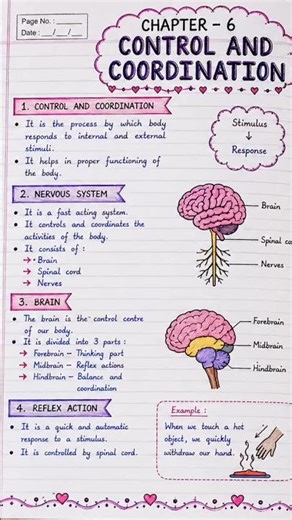 Page No. : ______
Date : __/__/__
CHAPTER - 6
CONTROL AND
COORDINATION
1. CONTROL AND COORDINATION
• It is the process by which body
responds to internal and external
stimuli.
• It helps in proper functioning of
the body.
Stimulus
↓
Response
2. NERVOUS SYSTEM
• It is a fast acting system.
• It controls and coordinates the
activities of the body.
• It consists of :
→ • Brain
→ Spinal cord
→ Nerves
Brain
Spinal co
Nerves
3. BRAIN
• The brain is the control centre
of our body.
• It is divided into 3 parts :
→ Forebrain - Thinking part
→ Midbrain - Reflex actions
→ Hindbrain - Balance and
coordination
Forebrain
Midbrain
Hindbrain
4. REFLEX ACTION
• It is a quick and automatic
response to a stimulus.
• It is controlled by spinal cord.
Example :
When we touch a hot
object, we quickly
withdraw our hand.